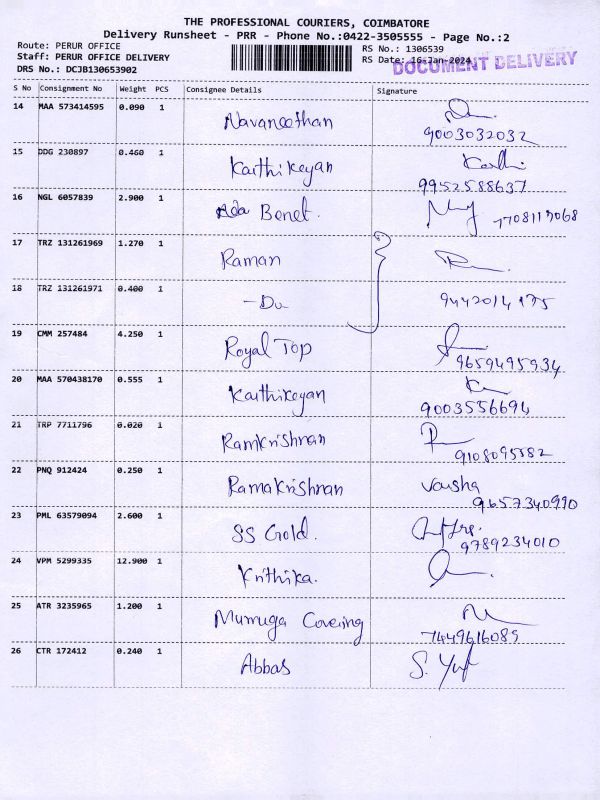 THE PROFESSIONAL COURIERS, COIMBATORE
Delivery Runsheet - PRR - Phone No.:0422-3505555 - Page No.:2
Route: PERUR OFFICE RS No.: 1306539
Staff: PERUR OFFICE DELIVERY RS Date: 16-Jan-2024
DOCUMENT DELIVERY
DRS No.: DCJB130653902
S No Consignment No Weight PCS Consignee Details Signature
14 MAA 573414595 0.090 1 Navaneethan
9003032032
15 DDG 230897 0.460 1 Karthikeyan
9952588637
16 NGL 6057839 2.900 1 Ada Benet.
17 TRZ 131261969 1.270 1 Raman
18 TRZ 131261971 0.400 1 -Do
19 CMM 257484 4.250 1 Royal Top
9659495934
20 MAA 570438170 0.555 1 Karthikeyan
9003556694
21 TRP 7711796 0.020 1 Ramkrishnan
22 PNQ 912424 0.250 1 Ramakrishnan Varsha
9657340990
23 PML 63579094 2.600 1 SS Gold.
9789234010
24 VPM 5299335 12.900 1 Krithika.
25 ATR 3235965 1.200 1 Muruga Covering
7449616089
26 CTR 172412 0.240 1 Abbas